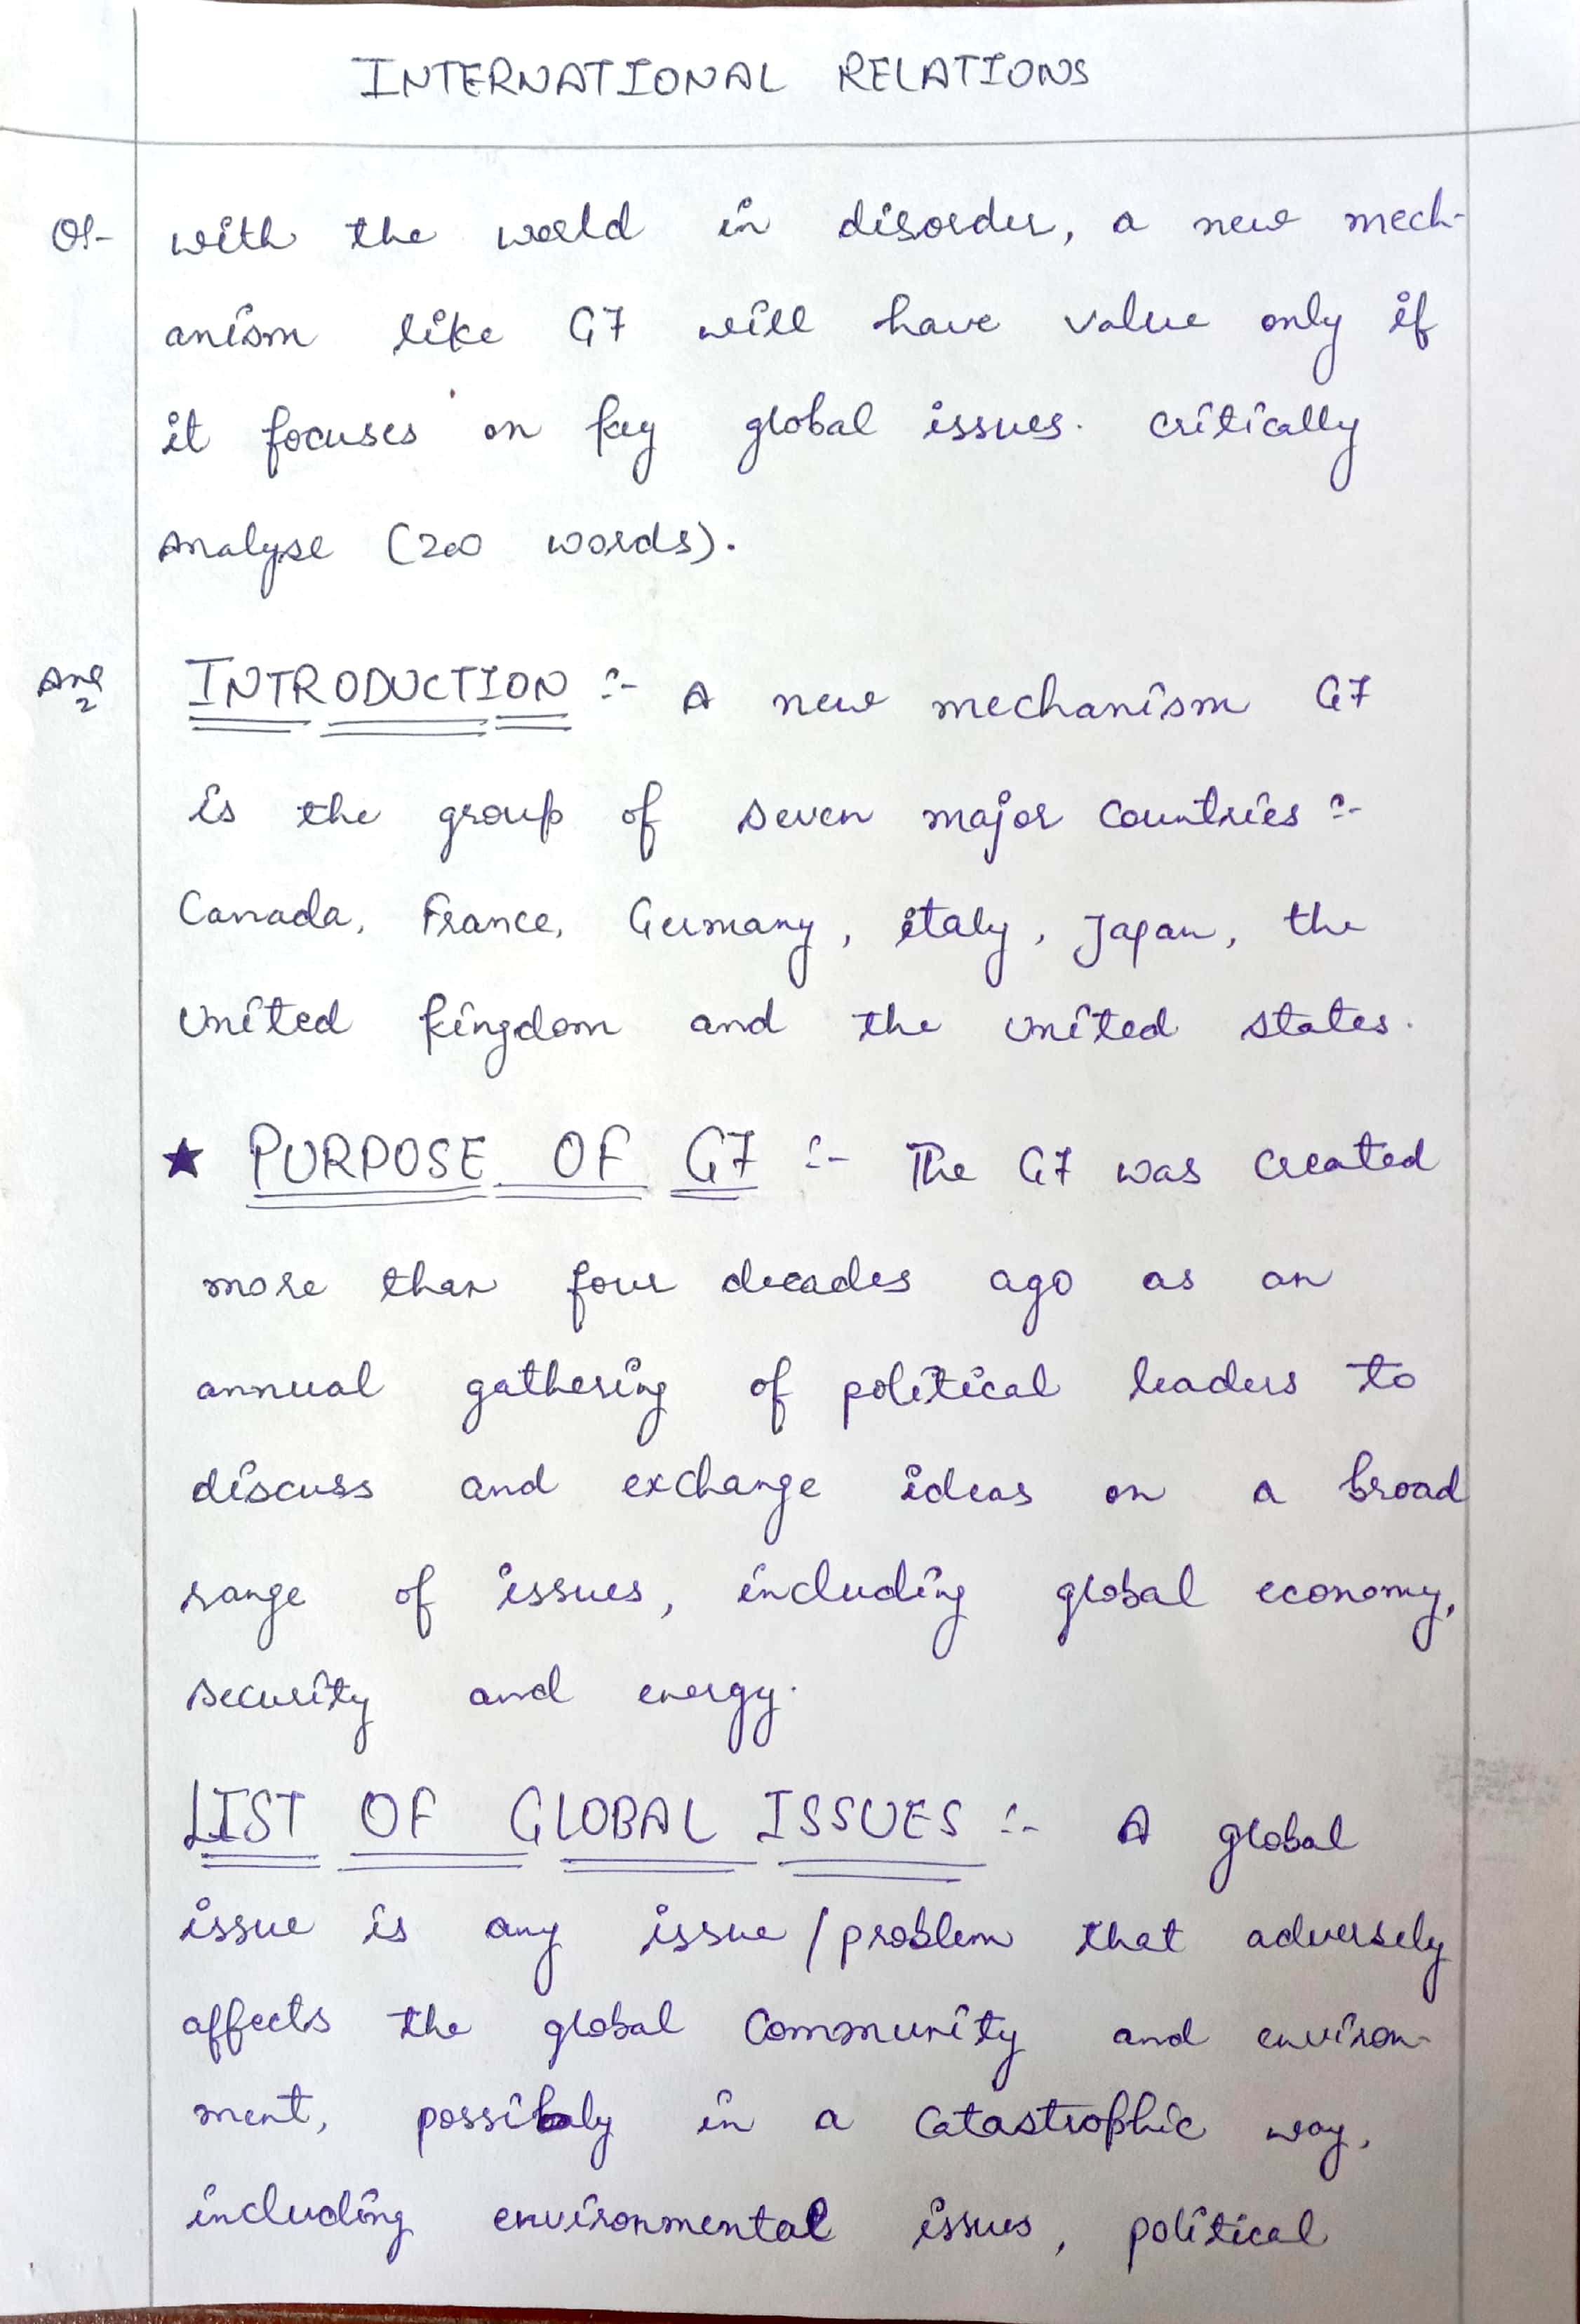 INTERNATIONAL RELATIONS
Q1- with the world in disorder, a new mech-
anism like G7 will have value only if
it focuses on key global issues. critically
Analyse (200 words).
Ans INTRODUCTION :- A new mechanism G7
is the group of seven major countries :-
Canada, France, Germany, italy, Japan, the
United kingdom and the United states.
★ PURPOSE OF G7 :- The G7 was created
more than four decades ago as an
annual gathering of political leaders to
discuss and exchange ideas on a broad
range of issues, including global economy,
security and energy.
LIST OF GLOBAL ISSUES :- A global
issue is any issue/problem that adversely
affects the global community and environ-
ment, possibaly in a catastrophic way,
including environmental issues, political